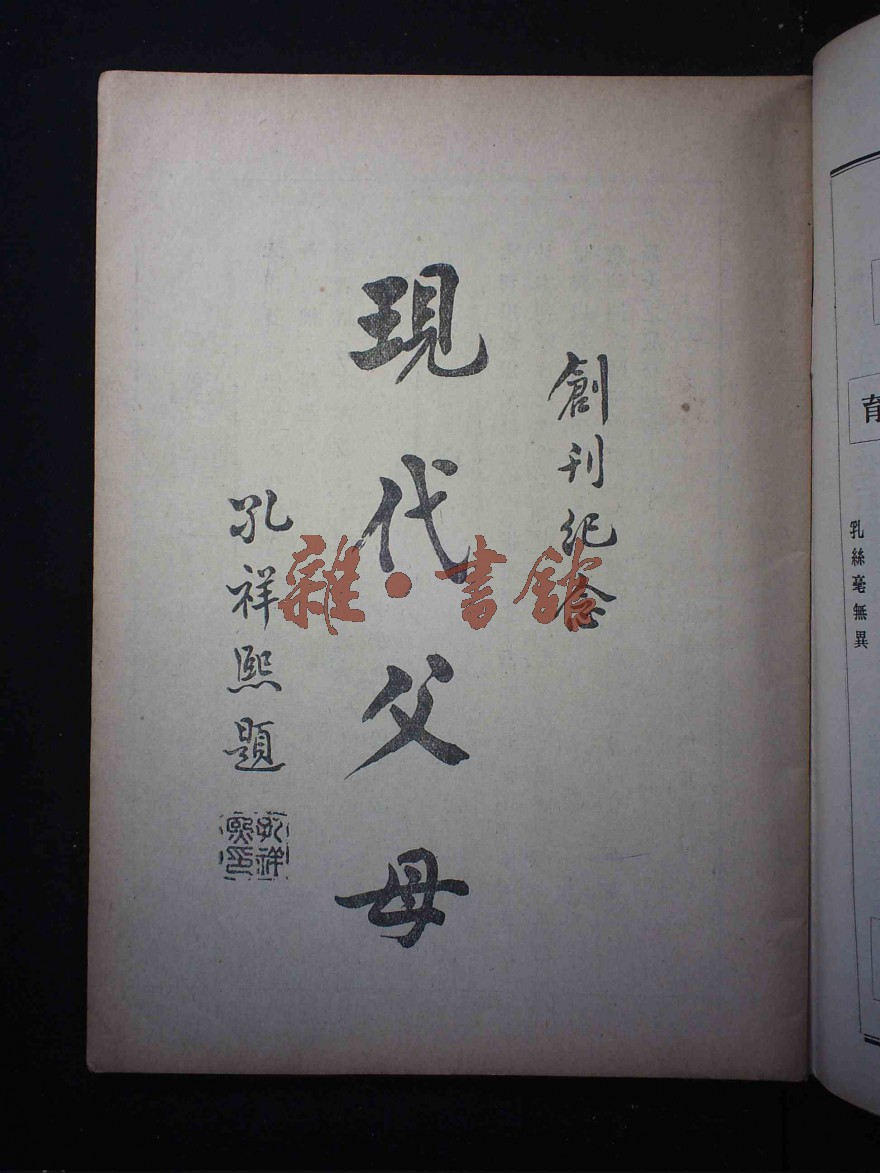 創刊紀念
現代父母
孔祥熙題
孔祥熙印
雜·書館
育
乳絲毫無異